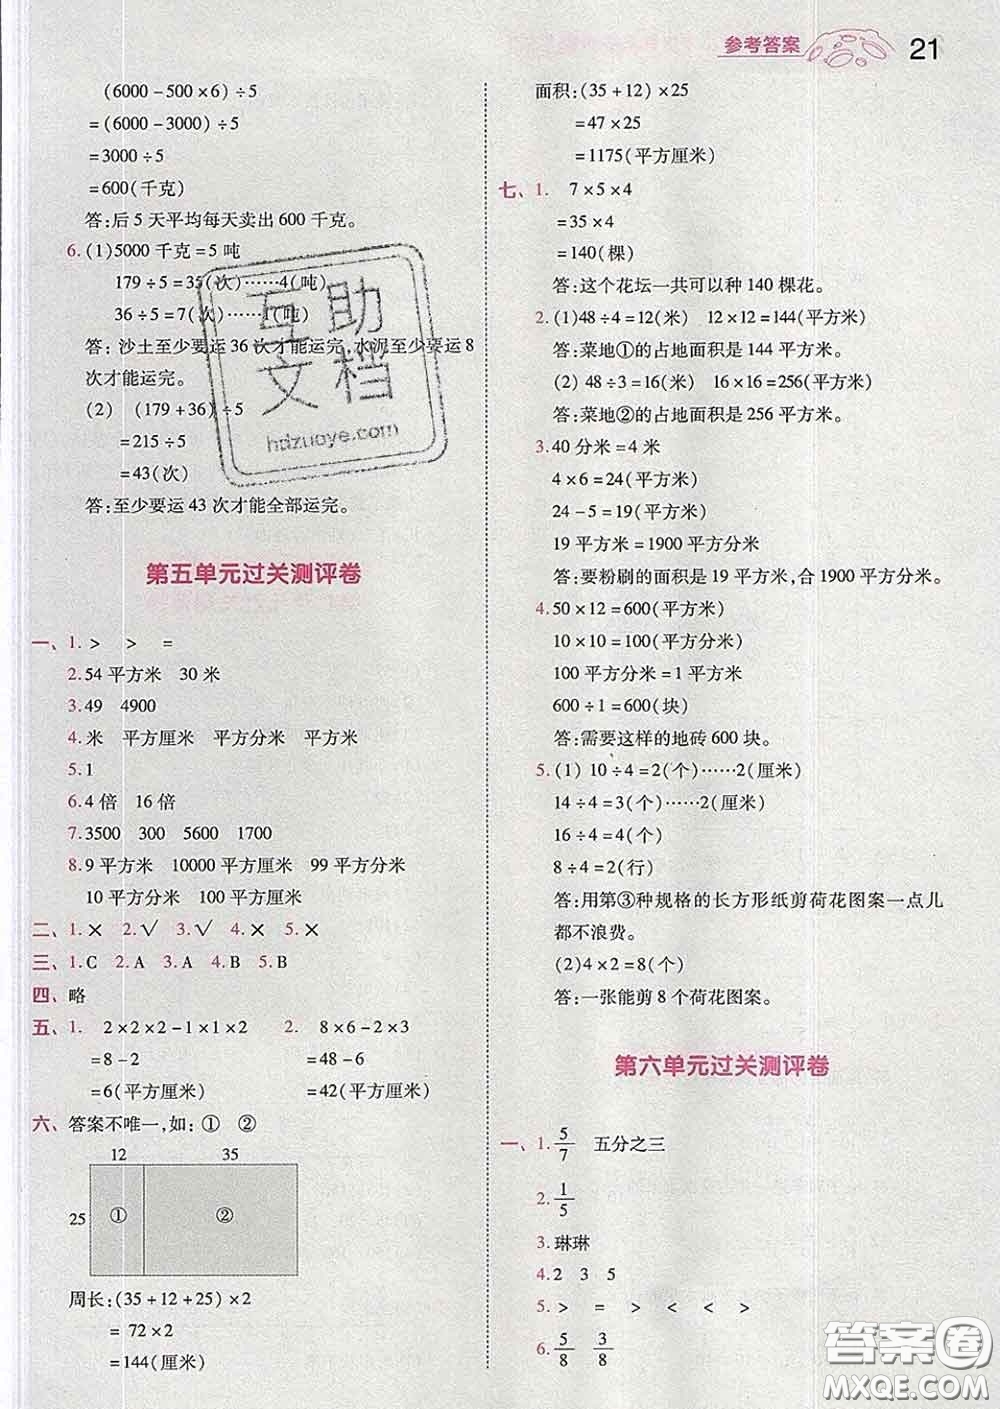 参考答案 21
(6000-500×6)÷5
=(6000-3000)÷5
=3000÷5
=600(千克)
答:后5天平均每天卖出600千克。
6.(1)5000千克=5吨
179÷5=35(次)……4(吨)
36÷5=7(次)……1(吨)
答:沙土至少要运36次才能运完,水泥至少要运8
次才能运完。
(2) (179+36)÷5
=215÷5
=43(次)
答:至少要运43次才能全部运完。
互助
文档
hdzuoye.com
第五单元过关测评卷
一、1. > > =
2.54平方米 30米
3.49 4900
4.米 平方厘米 平方分米 平方米
5.1
6.4倍 16倍
7.3500 300 5600 1700
8.9平方米 10000平方厘米 99平方分米
10平方分米 100平方厘米
二、1.× 2.√ 3.√ 4.× 5.×
三、1.C 2.A 3.A 4.B 5.B
四、略
五、1. 2×2×2-1×1×2 2. 8×6-2×3
=8-2 =48-6
=6(平方厘米) =42(平方厘米)
六、答案不唯一,如:① ②
12 35
25 ① ②
周长:(35+12+25)×2
= 72×2
=144(厘米)
面积:(35+12)×25
=47×25
=1175(平方厘米)
七、1. 7×5×4
=35×4
=140(棵)
答:这个花坛一共可以种140棵花。
2.(1)48÷4=12(米) 12×12=144(平方米)
答:菜地①的占地面积是144平方米。
(2) 48÷3=16(米) 16×16=256(平方米)
答:菜地②的占地面积是256平方米。
3.40分米=4米
4×6=24(平方米)
24-5=19(平方米)
19平方米=1900平方分米
答:要粉刷的面积是19平方米,合1900平方分米。
4.50×12=600(平方米)
10×10=100(平方分米)
100平方分米=1平方米
600÷1=600(块)
答:需要这样的地砖600块。
5.(1) 10÷4=2(个)……2(厘米)
14÷4=3(个)……2(厘米)
16÷4=4(个)
8÷4=2(行)
答:用第③种规格的长方形纸剪荷花图案一点儿
都不浪费。
(2)4×2=8(个)
答:一张能剪8个荷花图案。
第六单元过关测评卷
一、1. 5/7 五分之三
2. 1/5
3.琳琳
4.2 3 5
5. > = > < < >
6. 5/8 3/8
答案圈
MXQE.COM